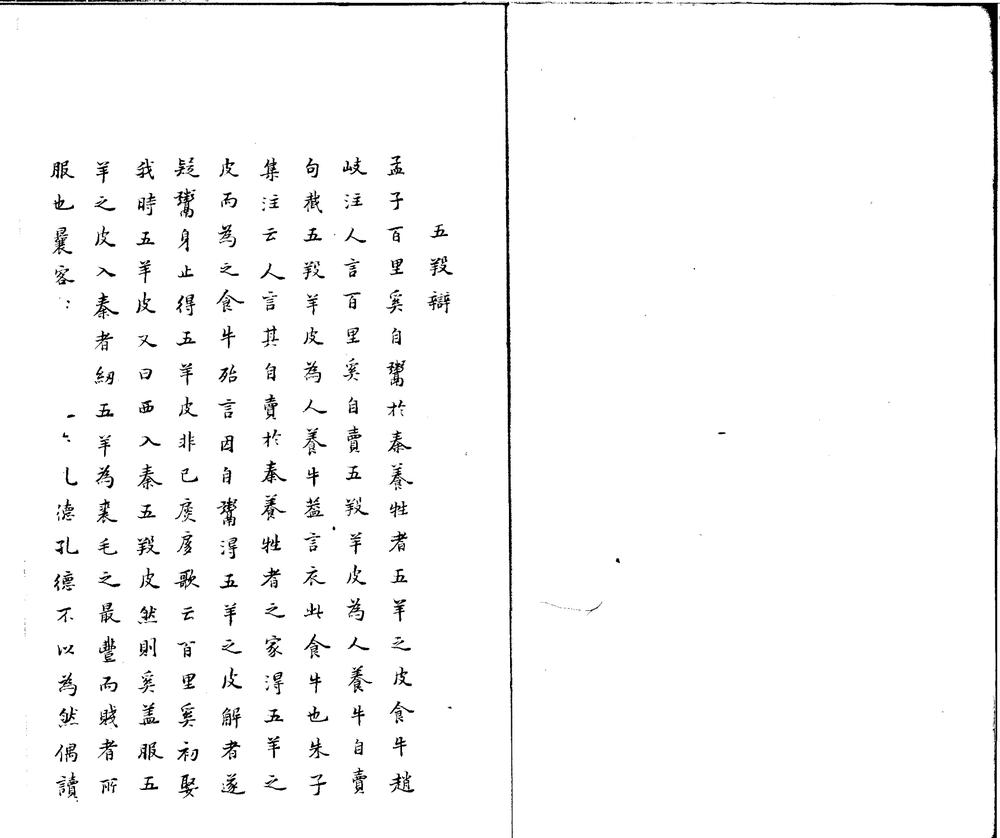 五羖辯
孟子百里奚自鬻於秦養牲者五羊之皮食牛趙
岐注人言百里奚自賣五羖羊皮為人養牛自賣
句截五羖羊皮為人養牛葢言衣此食牛也朱子
集注云人言其自賣於秦養牲者之家淂五羊之
皮而為之食牛殆言因自鬻淂五羊之皮解者遂
疑鬻身止得五羊皮非已扊扅歌云百里奚初娶
我時五羊皮又曰西入秦五羖皮然則奚盖服五
羊之皮入秦者紉五羊為裘毛之最豐而賤者所
服也曩客 孔德孔德不以為然偶讀